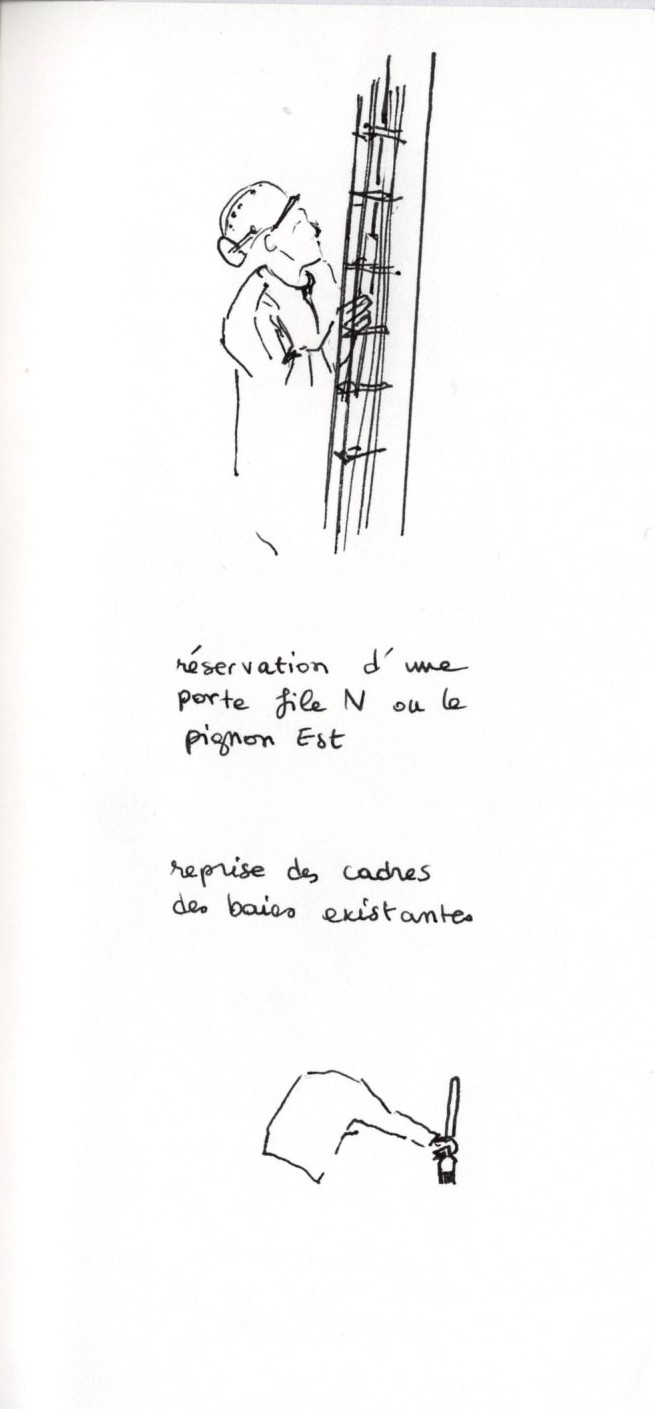 réservation d'une
porte file N ou le
pignon Est
reprise des cadres
des baies existantes